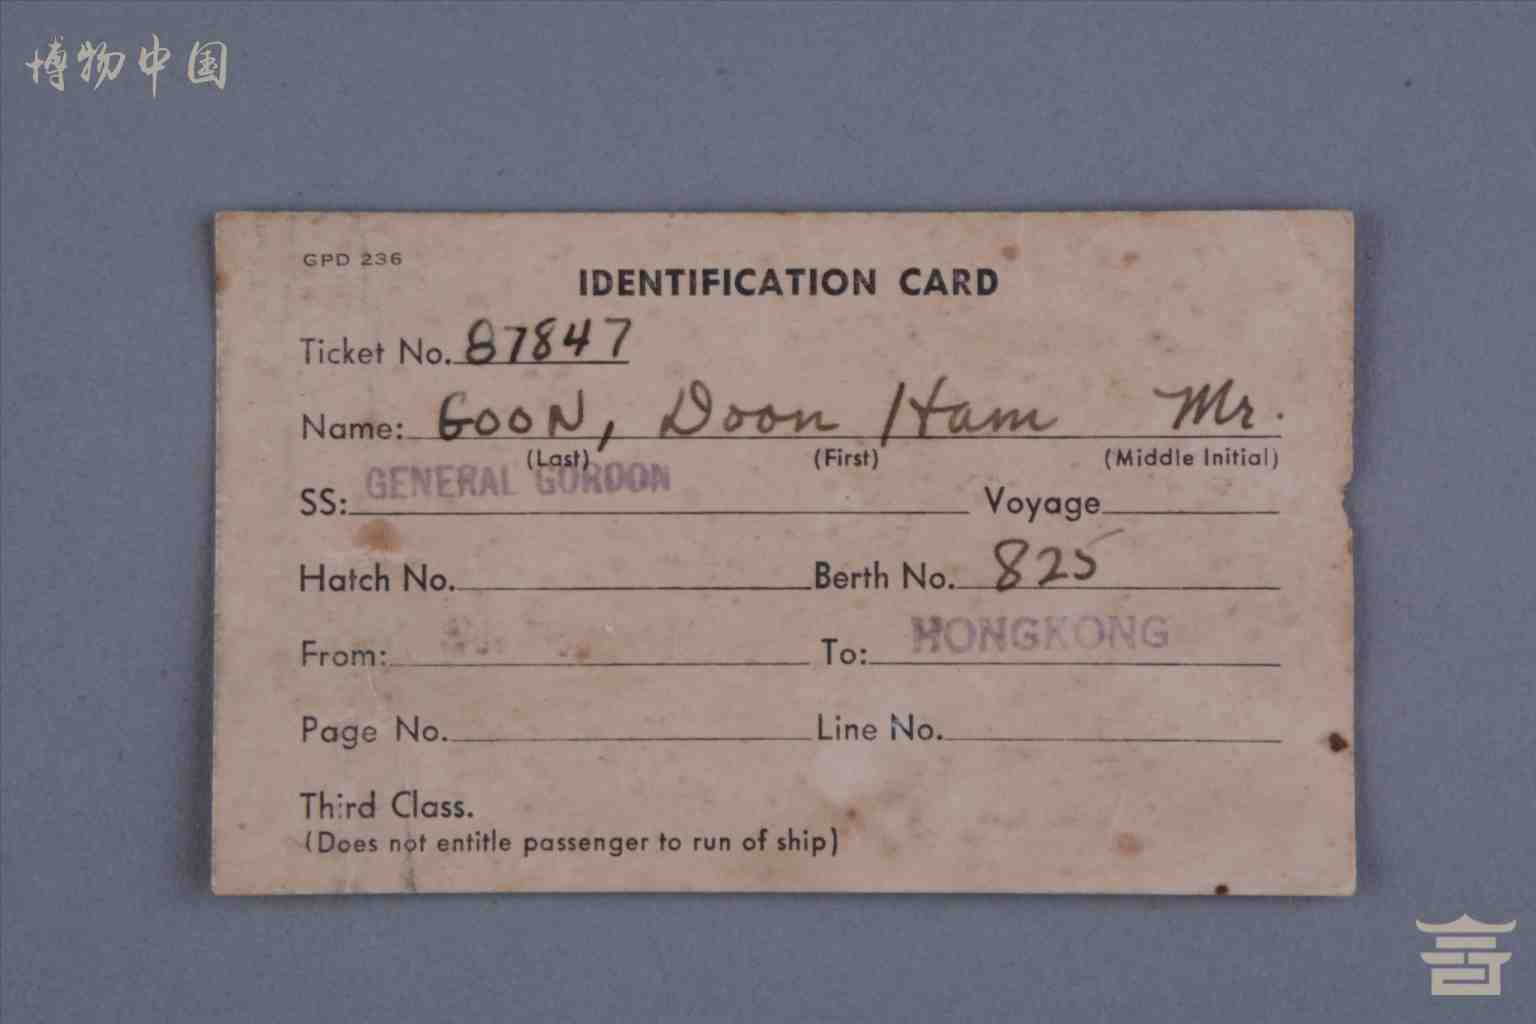 博物中国
GPD 236
IDENTIFICATION CARD
Ticket No. 87847
Name: GOON, Doon Ham Mr.
(Last) (First) (Middle Initial)
SS: GENERAL GORDON Voyage
Hatch No. Berth No. 825
From: To: HONGKONG
Page No. Line No.
Third Class.
(Does not entitle passenger to run of ship)